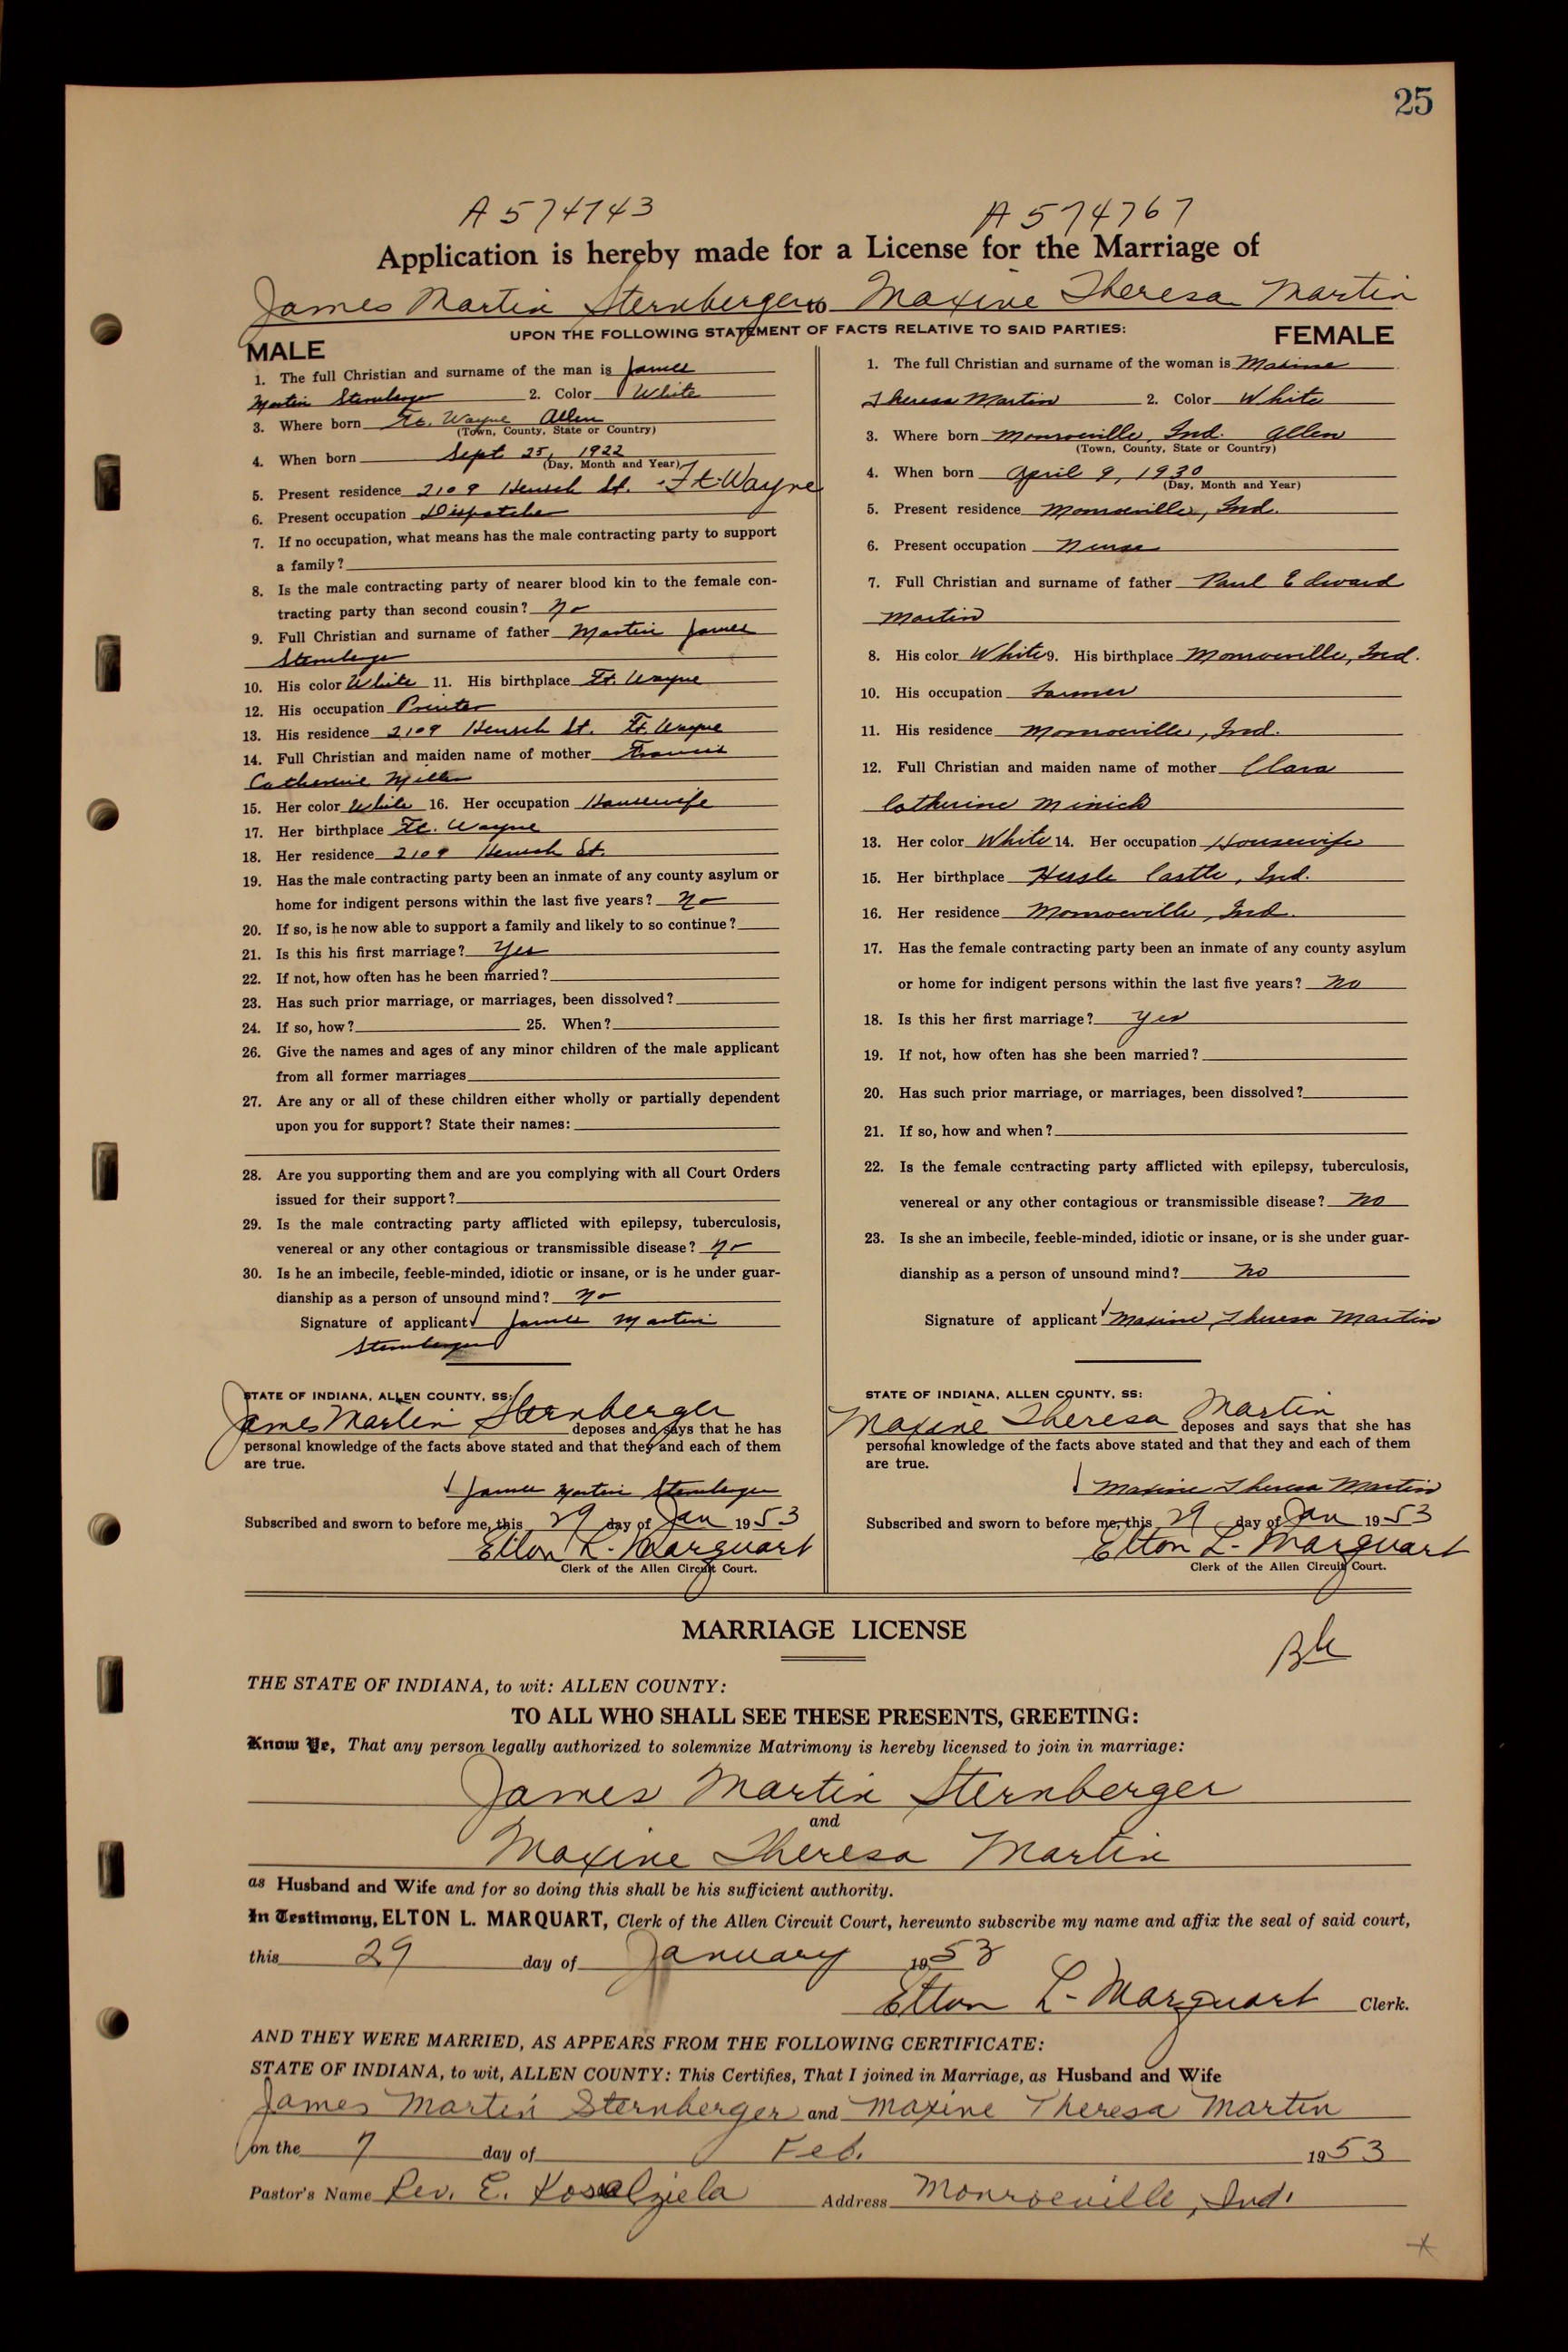 25
A 574743 A 574767
Application is hereby made for a License for the Marriage of
James Martin Sternberger to Maxine Theresa Martin
UPON THE FOLLOWING STATEMENT OF FACTS RELATIVE TO SAID PARTIES:
MALE
1. The full Christian and surname of the man is James
Martin Sternberger 2. Color White
3. Where born Ft. Wayne Allen
(Town, County, State or Country)
4. When born Sept 25, 1922
(Day, Month and Year)
5. Present residence 2109 Hensch St. Ft. Wayne
6. Present occupation Dispatcher
7. If no occupation, what means has the male contracting party to support
a family?
8. Is the male contracting party of nearer blood kin to the female con-
tracting party than second cousin? no
9. Full Christian and surname of father Martin James
Sternberger
10. His color White 11. His birthplace Ft. Wayne
12. His occupation Printer
13. His residence 2109 Hensch St. Ft. Wayne
14. Full Christian and maiden name of mother Francis
Catherine Miller
15. Her color White 16. Her occupation Housewife
17. Her birthplace Ft. Wayne
18. Her residence 2109 Hensch St.
19. Has the male contracting party been an inmate of any county asylum or
home for indigent persons within the last five years? No
20. If so, is he now able to support a family and likely to so continue?
21. Is this his first marriage? Yes
22. If not, how often has he been married?
23. Has such prior marriage, or marriages, been dissolved?
24. If so, how? 25. When?
26. Give the names and ages of any minor children of the male applicant
from all former marriages
27. Are any or all of these children either wholly or partially dependent
upon you for support? State their names:
28. Are you supporting them and are you complying with all Court Orders
issued for their support?
29. Is the male contracting party afflicted with epilepsy, tuberculosis,
venereal or any other contagious or transmissible disease? no
30. Is he an imbecile, feeble-minded, idiotic or insane, or is he under guar-
dianship as a person of unsound mind? no
Signature of applicant James Martin
Sternberger
STATE OF INDIANA, ALLEN COUNTY, SS:
James Martin Sternberger deposes and says that he has
personal knowledge of the facts above stated and that they and each of them
are true.
James Martin Sternberger
Subscribed and sworn to before me, this 29 day of Jan 1953
Elton L. Marquart
Clerk of the Allen Circuit Court.
FEMALE
1. The full Christian and surname of the woman is Maxine
Theresa Martin 2. Color White
3. Where born Monroeville, Ind. Allen
(Town, County, State or Country)
4. When born April 9, 1930
(Day, Month and Year)
5. Present residence Monroeville, Ind.
6. Present occupation Nurse
7. Full Christian and surname of father Paul Edward
Martin
8. His color White 9. His birthplace Monroeville, Ind.
10. His occupation Farmer
11. His residence Monroeville, Ind.
12. Full Christian and maiden name of mother Clara
Catherine Minick
13. Her color White 14. Her occupation Housewife
15. Her birthplace Castle, Ind.
16. Her residence Monroeville, Ind.
17. Has the female contracting party been an inmate of any county asylum
or home for indigent persons within the last five years? no
18. Is this her first marriage? yes
19. If not, how often has she been married?
20. Has such prior marriage, or marriages, been dissolved?
21. If so, how and when?
22. Is the female contracting party afflicted with epilepsy, tuberculosis,
venereal or any other contagious or transmissible disease? no
23. Is she an imbecile, feeble-minded, idiotic or insane, or is she under guar-
dianship as a person of unsound mind? no
Signature of applicant Maxine Theresa Martin
STATE OF INDIANA, ALLEN COUNTY, SS:
Maxine Theresa Martin deposes and says that she has
personal knowledge of the facts above stated and that they and each of them
are true.
Maxine Theresa Martin
Subscribed and sworn to before me, this 29 day of Jan 1953
Elton L. Marquart
Clerk of the Allen Circuit Court.
MARRIAGE LICENSE
THE STATE OF INDIANA, to wit: ALLEN COUNTY:
TO ALL WHO SHALL SEE THESE PRESENTS, GREETING:
Know Ye, That any person legally authorized to solemnize Matrimony is hereby licensed to join in marriage:
James Martin Sternberger
and
Maxine Theresa Martin
as Husband and Wife and for so doing this shall be his sufficient authority.
In Testimony, ELTON L. MARQUART, Clerk of the Allen Circuit Court, hereunto subscribe my name and affix the seal of said court,
this 29 day of January 1953
Elton L. Marquart Clerk.
AND THEY WERE MARRIED, AS APPEARS FROM THE FOLLOWING CERTIFICATE:
STATE OF INDIANA, to wit, ALLEN COUNTY: This Certifies, That I joined in Marriage, as Husband and Wife
James Martin Sternberger and Maxine Theresa Martin
on the 7 day of Feb. 1953
Pastor's Name Rev. E. Address Monroeville, Ind.